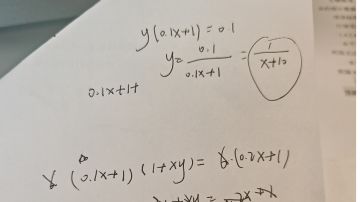 y(0.1x+1)=0.1
y=0.1/(0.1x+1)=1/(x+10)
0.1x+1+
(0.1x+1)(1+xy)= (0.2x+1)